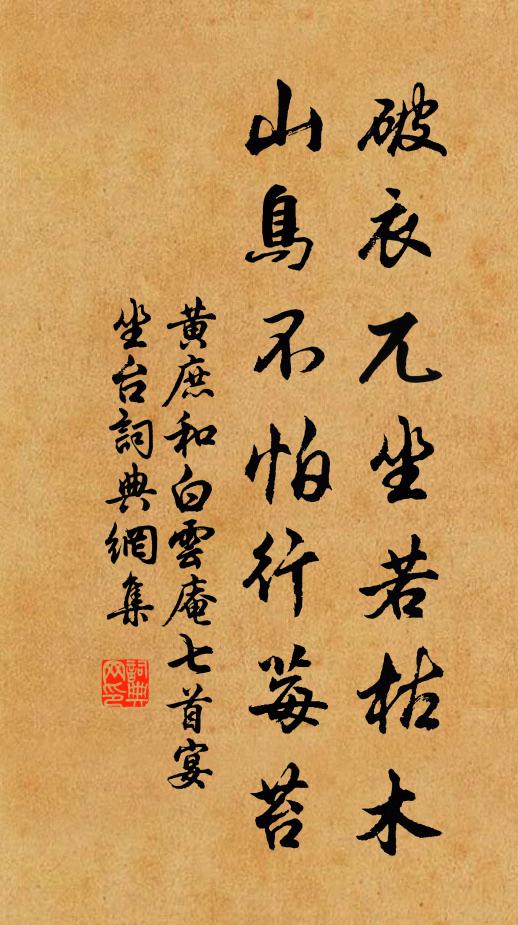 破衣兀坐若枯木
山鳥不怕行莓苔
黃庶和白雲庵七首宴
坐台詞典網集
詞典
网印